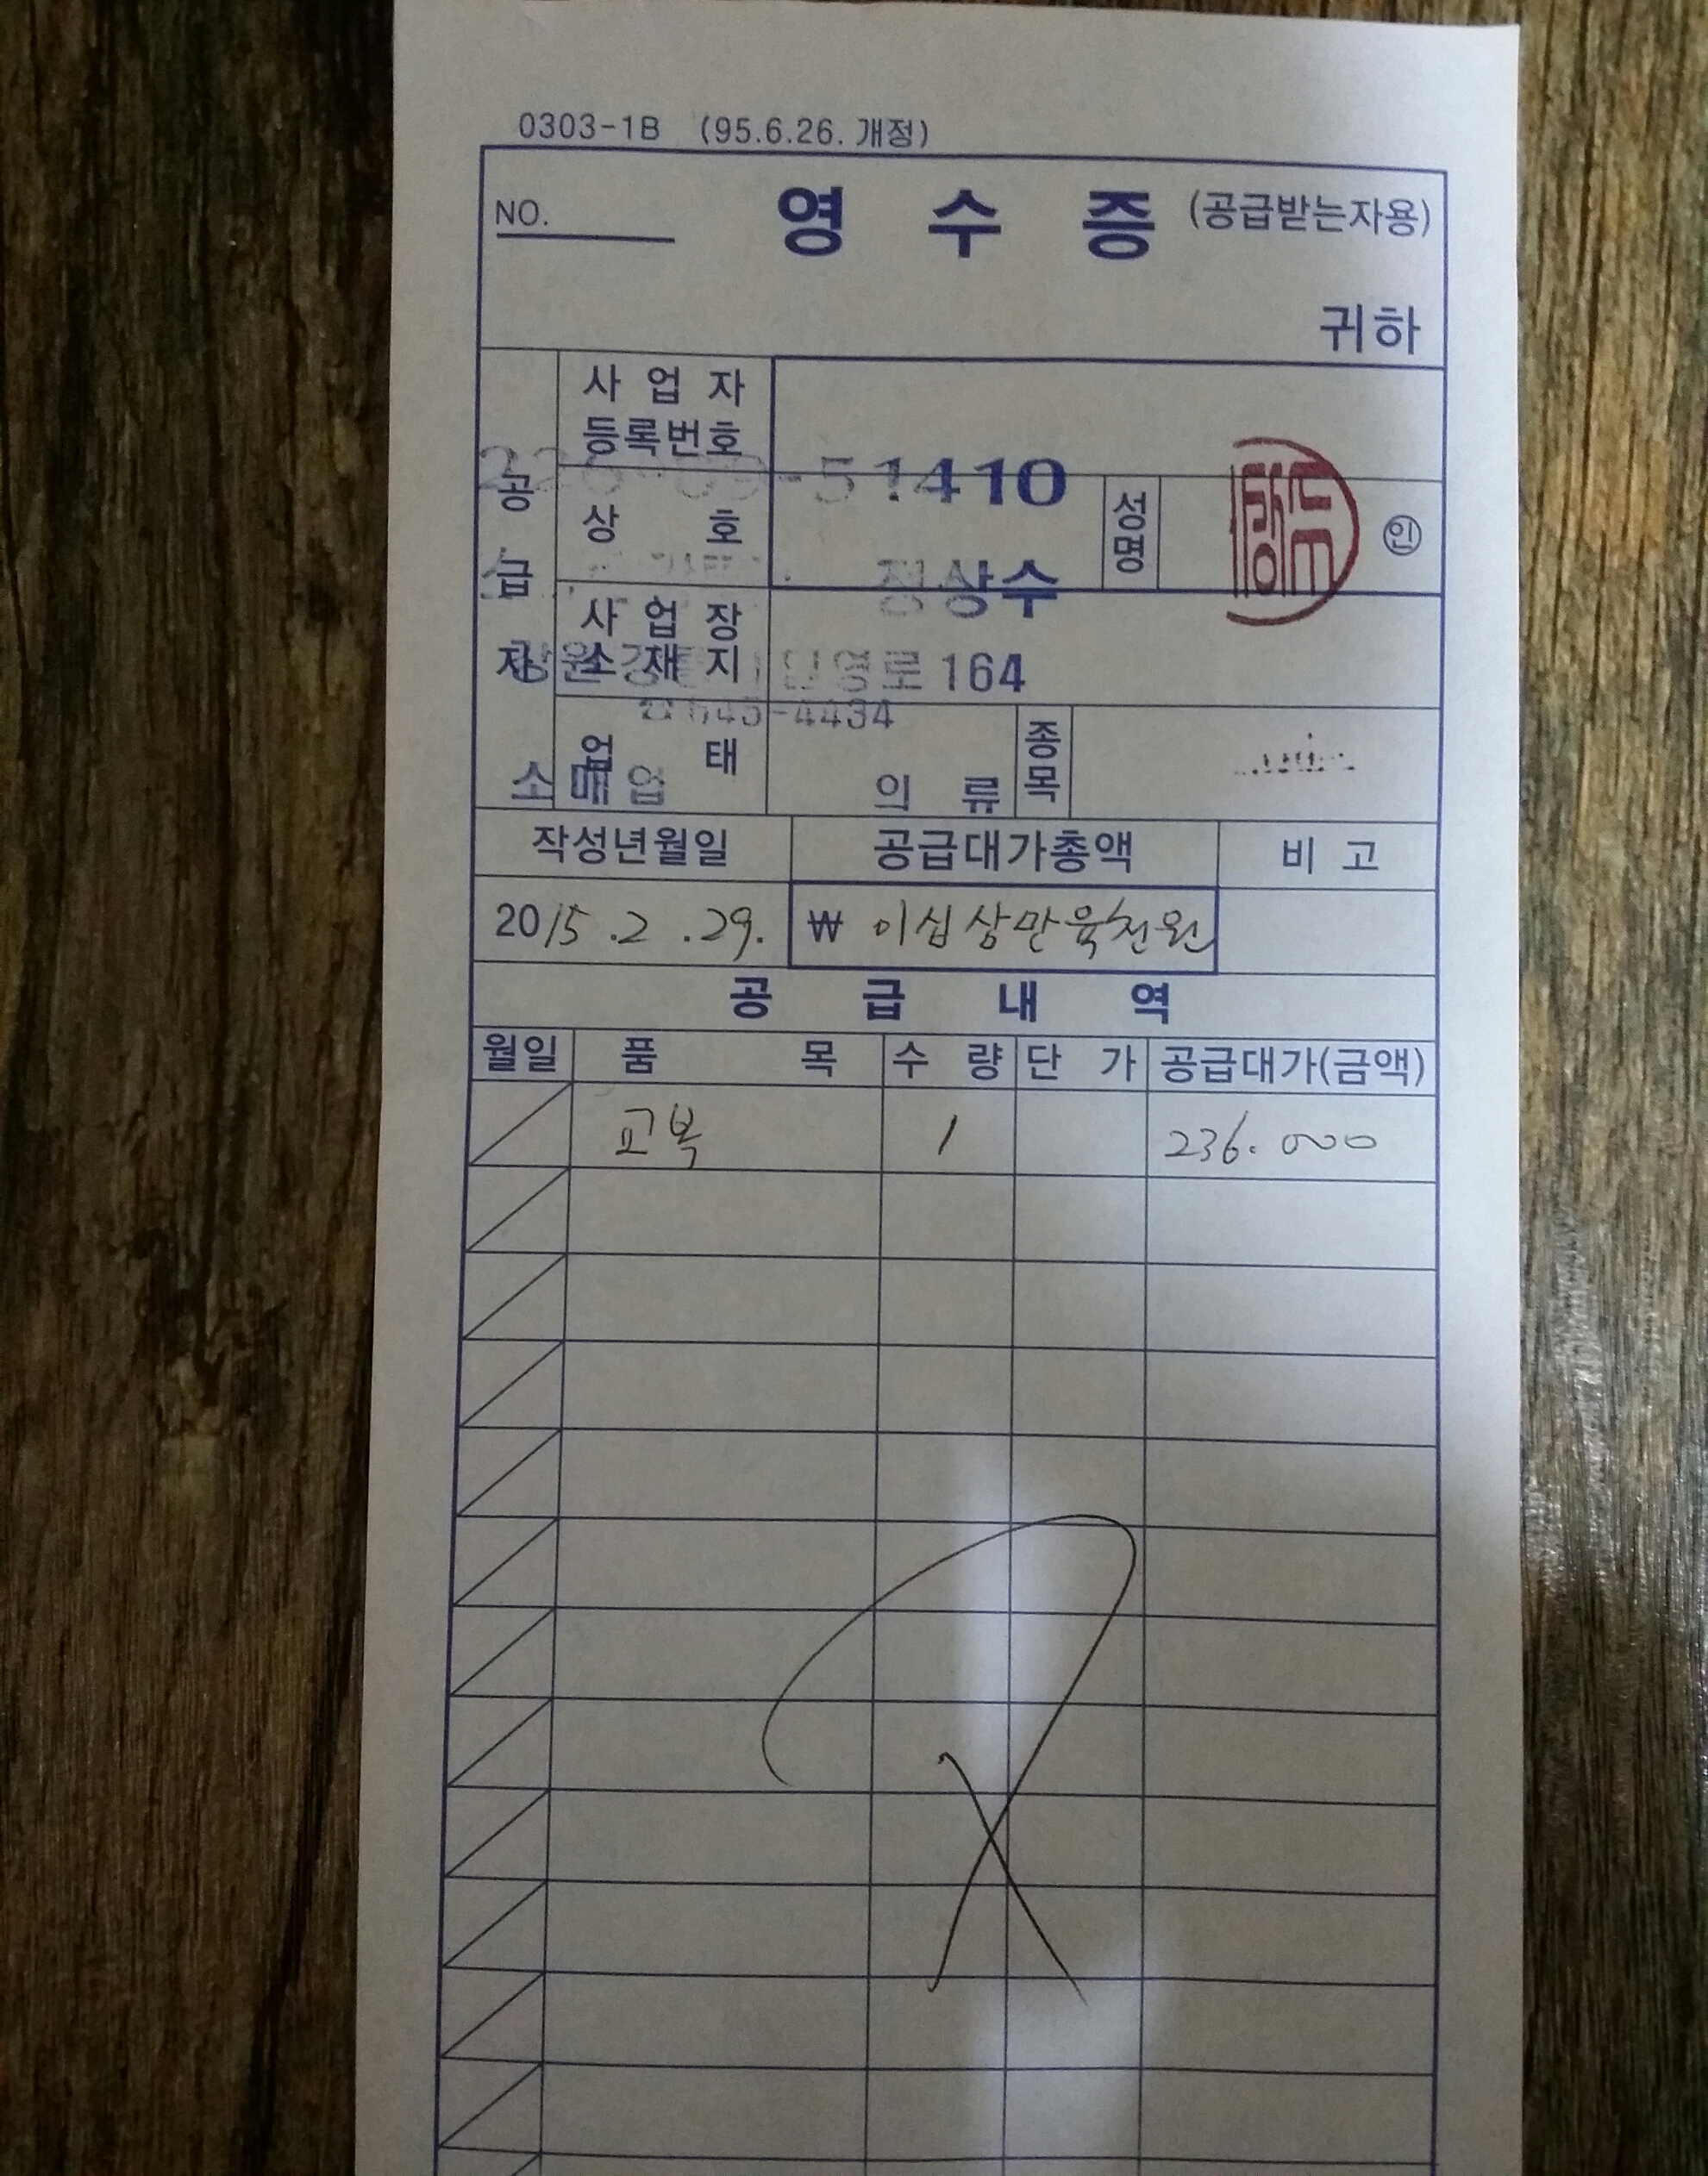 0303-1B (95.6.26. 개정)
NO.
영 수 증 (공급받는자용)
귀하
공급자
사업자등록번호
51410
상 호
성명
인
정상수
사업장소재지
164
645-4434
업 태
소매업
의 류
종목
작성년월일 공급대가총액 비 고
2015.2.29. ₩ 이십상만육천원
공 급 내 역
월일 품 목 수 량 단 가 공급대가(금액)
교복 1 236.000